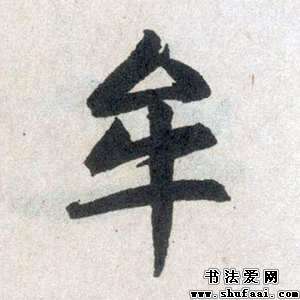 牟
书法爱网
www.shufaai.com